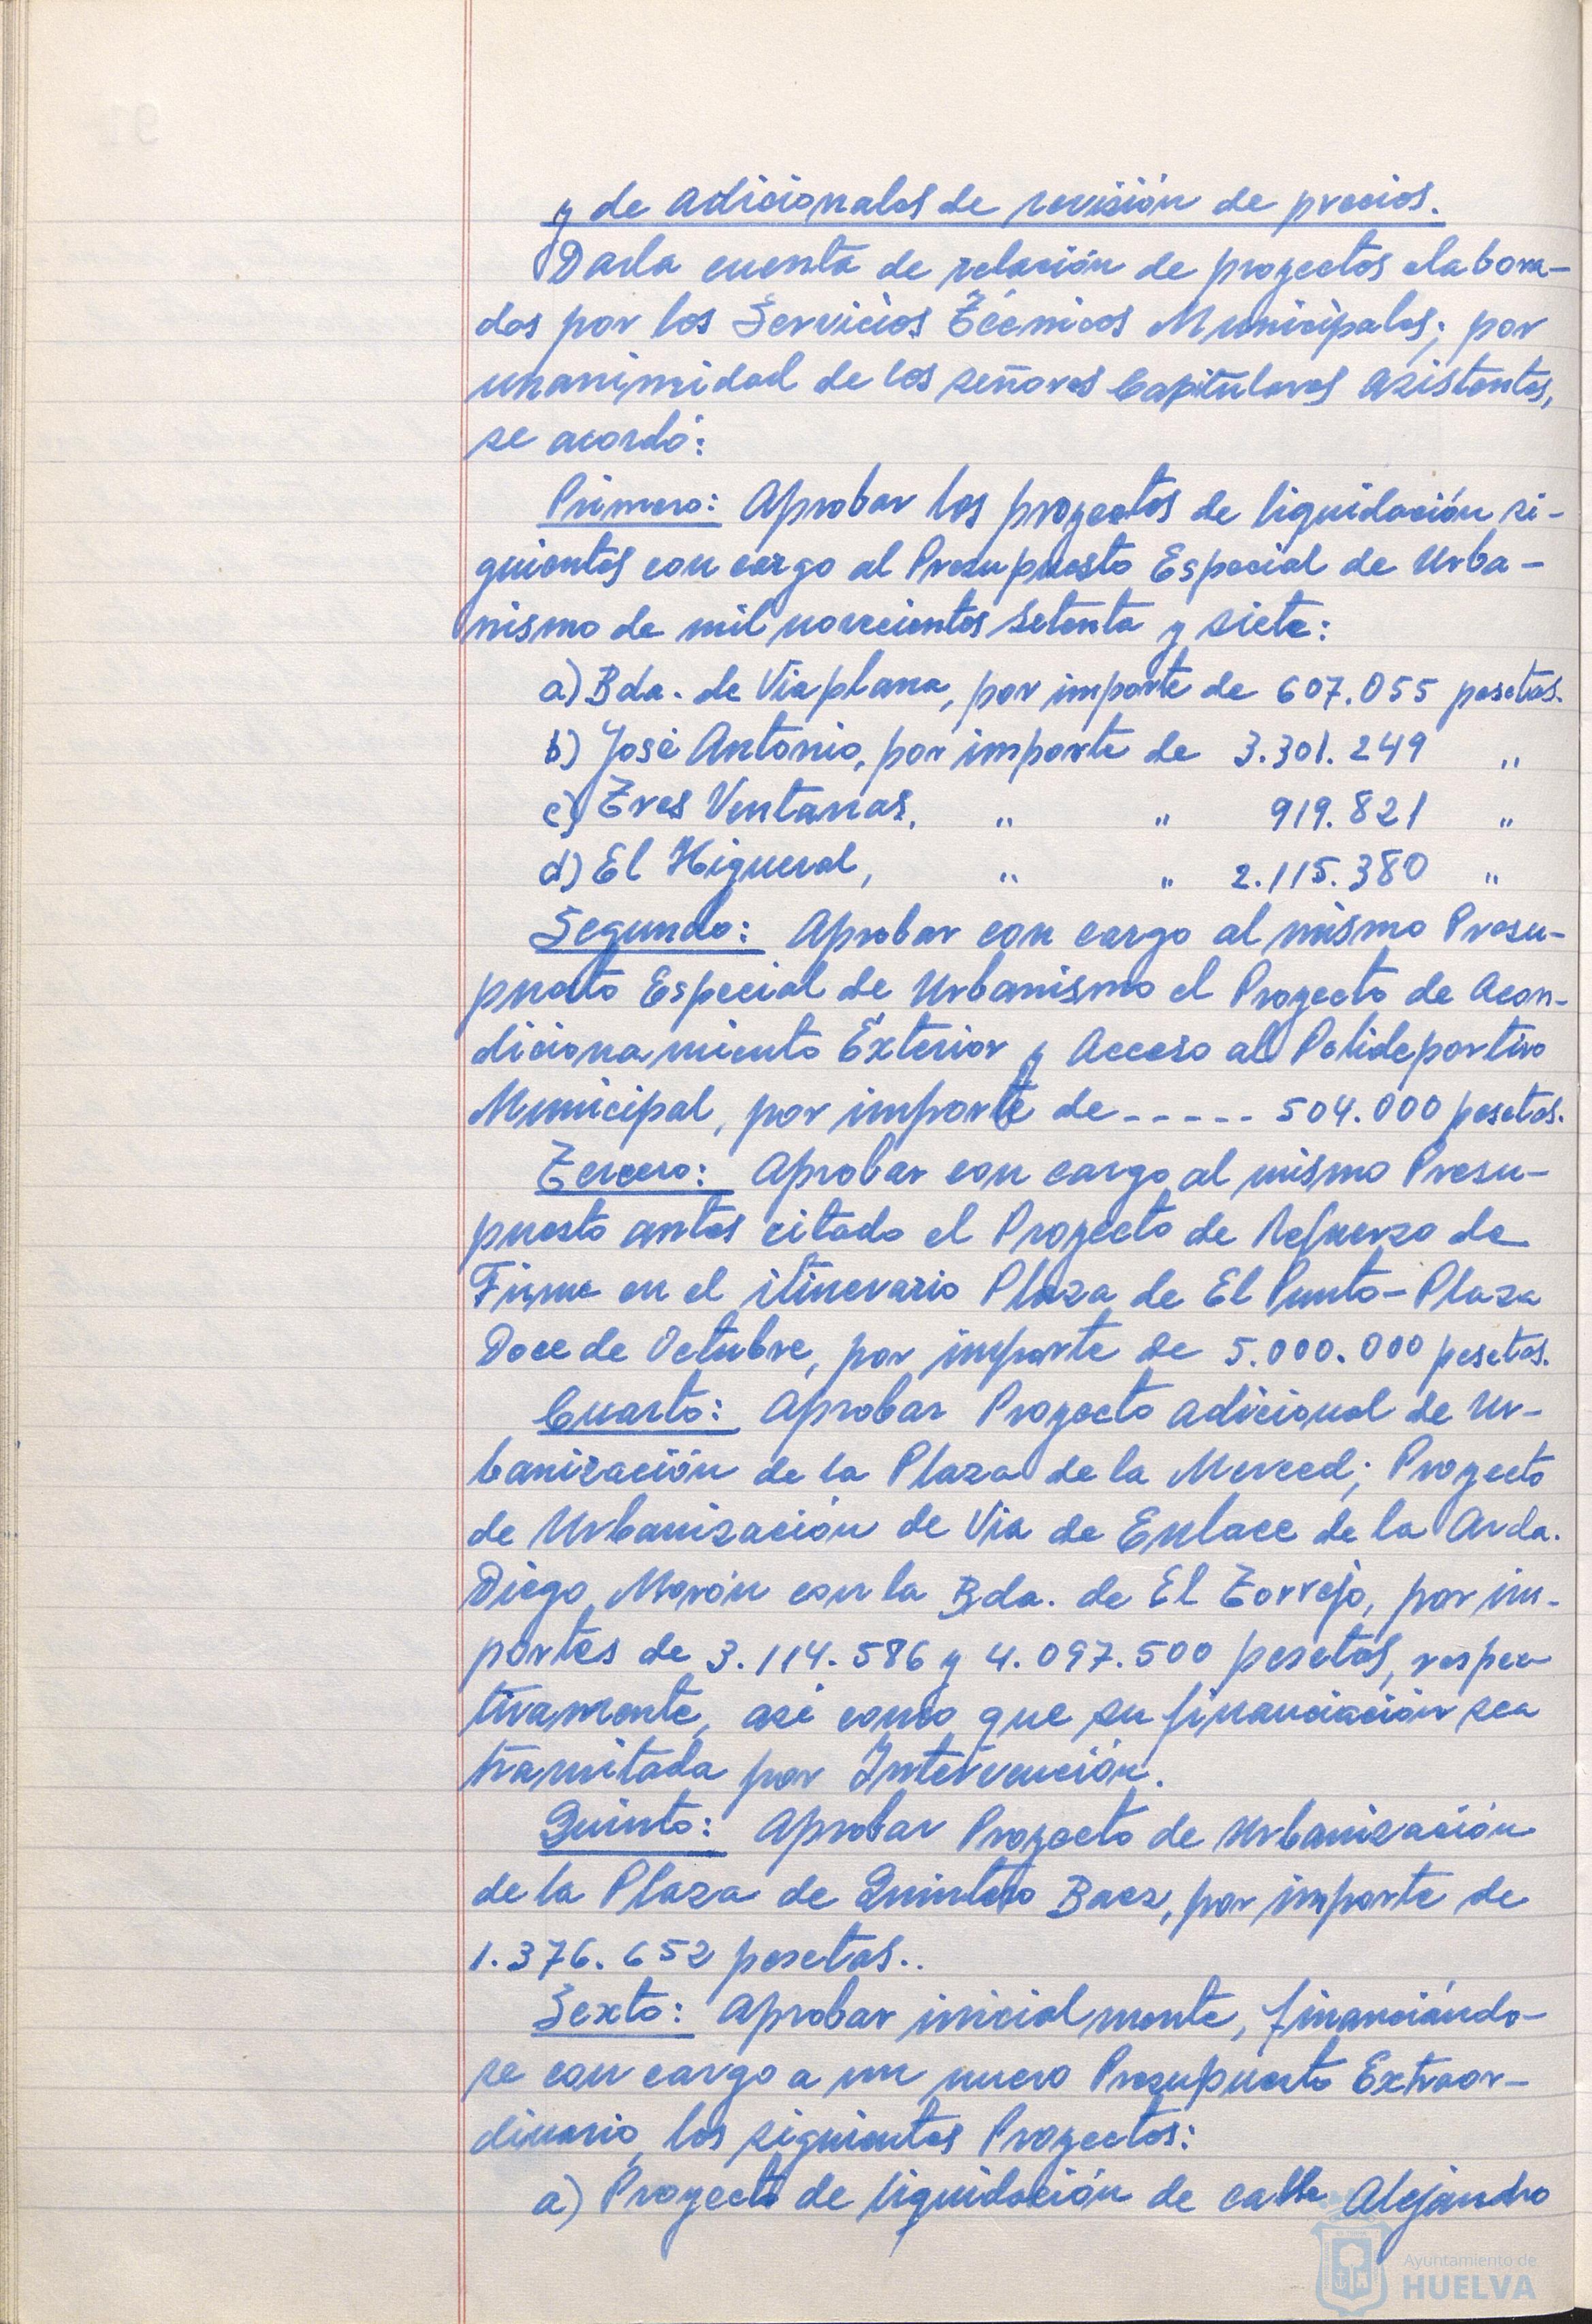 y de adicionales de revisión de precios.
Dada cuenta de relación de proyectos elabora-
dos por los Servicios Técnicos Municipales; por
unanimidad de los señores Capitulares asistentes,
se acordó:
Primero: Aprobar los proyectos de liquidación si-
guientes con cargo al Presupuesto Especial de Urba-
nismo de mil novecientos setenta y siete:
a) Bda. de Viaplana, por importe de 607.055 pesetas.
b) José Antonio, por importe de 3.301.249 "
c) Tres Ventanas, " " 919.821 "
d) El Higueral, " " 2.115.380 "
Segundo: Aprobar con cargo al mismo Presu-
puesto Especial de Urbanismo el Proyecto de Acon-
dicionamiento Exterior y Acceso al Polideportivo
Municipal, por importe de ----- 504.000 pesetas.
Tercero: Aprobar con cargo al mismo Presu-
puesto antes citado el Proyecto de Refuerzo de
Firme en el itinerario Plaza de El Punto-Plaza
Doce de Octubre, por importe de 5.000.000 pesetas.
Cuarto: Aprobar Proyecto adicional de Ur-
banización de la Plaza de la Merced; Proyecto
de Urbanización de Via de Enlace de la Avda.
Diego Morón con la Bda. de El Torrejo, por im-
portes de 3.114.586 y 4.097.500 pesetas, respec-
tivamente, asi como que su financiación sea
tramitada por Intervención.
Quinto: Aprobar Proyecto de Urbanización
de la Plaza de Quintero Baez, por importe de
1.376.652 pesetas..
Sexto: Aprobar inicialmente, financiándo-
se con cargo a un nuevo Presupuesto Extraor-
dinario, los siguientes Proyectos:
a) Proyecto de liquidación de calle Alejandro
Ayuntamiento de
HUELVA